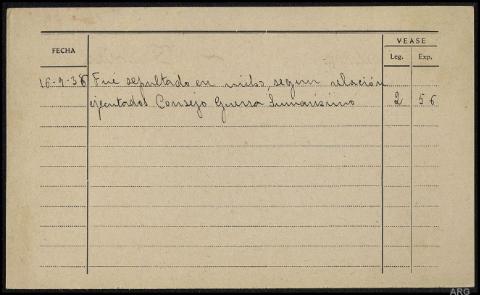 VEASE
FECHA
Leg. Exp.
16-9-38 Fué sepultado en nicho, segun relación
ejecutados Consejo Guerra Sumarísimo 2 56
ARG